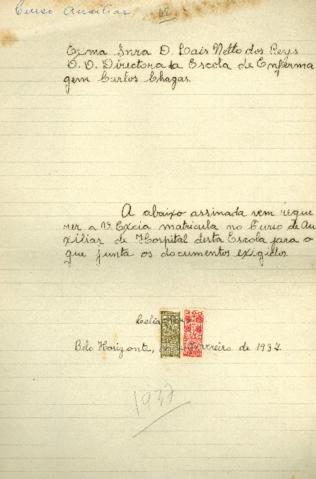 Curso Auxiliar
Exma Snra D. Laís Netto dos Reys
D. D. Directora da Escola de Enferma
gem Carlos Chagas.
A abaixo assinada vem reque
rer a V. Excia matricula no Curso de Au
xiliar de Hospital desta Escola para o
que junta os documentos exigidos
Celia
Belo Horizonte, fevereiro de 1937.
1937